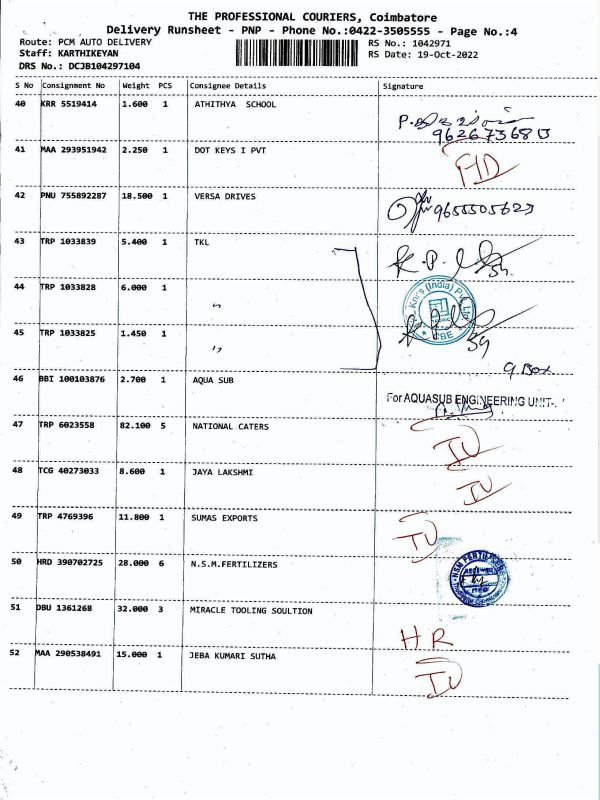 THE PROFESSIONAL COURIERS, Coimbatore
Delivery Runsheet - PNP - Phone No.:0422-3505555 - Page No.:4
Route: PCM AUTO DELIVERY
Staff: KARTHIKEYAN
DRS No.: DCJB104297104
RS No.: 1042971
RS Date: 19-Oct-2022
S No Consignment No Weight PCS Consignee Details Signature
40 KRR 5519414 1.600 1 ATHITHYA SCHOOL
41 MAA 293951942 2.250 1 DOT KEYS I PVT
42 PNU 755892287 18.500 1 VERSA DRIVES 9655505623
43 TRP 1033839 5.400 1 TKL
44 TRP 1033828 6.000 1 〃
45 TRP 1033825 1.450 1 〃
9 Box
46 BBI 100103876 2.700 1 AQUA SUB For AQUASUB ENGINEERING UNIT-
47 TRP 6023558 82.100 5 NATIONAL CATERS IU
48 TCG 40273033 8.600 1 JAYA LAKSHMI IU
49 TRP 4769396 11.800 1 SUMAS EXPORTS IU
50 HRD 390702725 28.000 6 N.S.M.FERTILIZERS
51 DBU 1361268 32.000 3 MIRACLE TOOLING SOULTION HR
52 MAA 290538491 15.000 1 JEBA KUMARI SUTHA IU